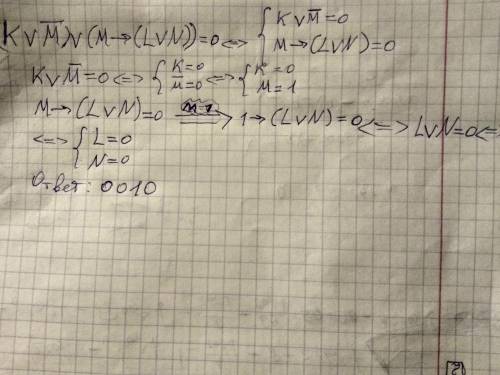 K∨M̅)∨(M→(L∨N))=0<=> { K∨M̅=0
M→(L∨N)=0
K∨M̅=0<=> { K=0 <=> { K=0
M̅=0 M=1
M→(L∨N)=0 =M=1=> 1→(L∨N)=0<=>L∨N=0<=
<=> { L=0
N=0
Ответ: 0010